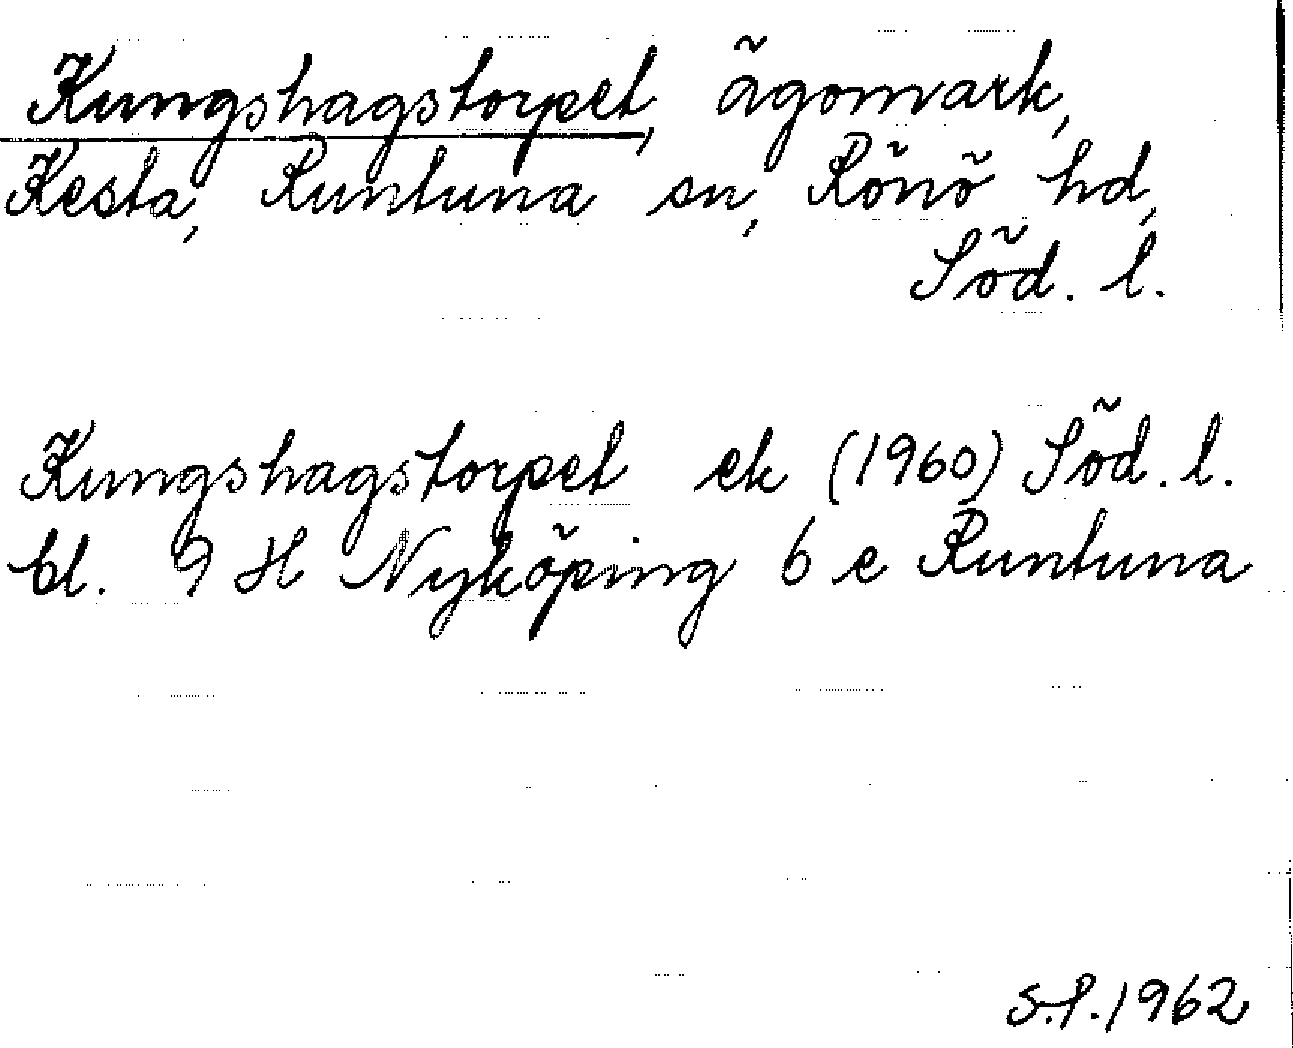 Kungshagstorpet, ägomark,
Kesta, Runtuna sn, Rönö hd,
Söd. l.
Kungshagstorpet ek (1960) Söd. l.
bl. 9 H Nyköping 6 e Runtuna
S.P. 1962